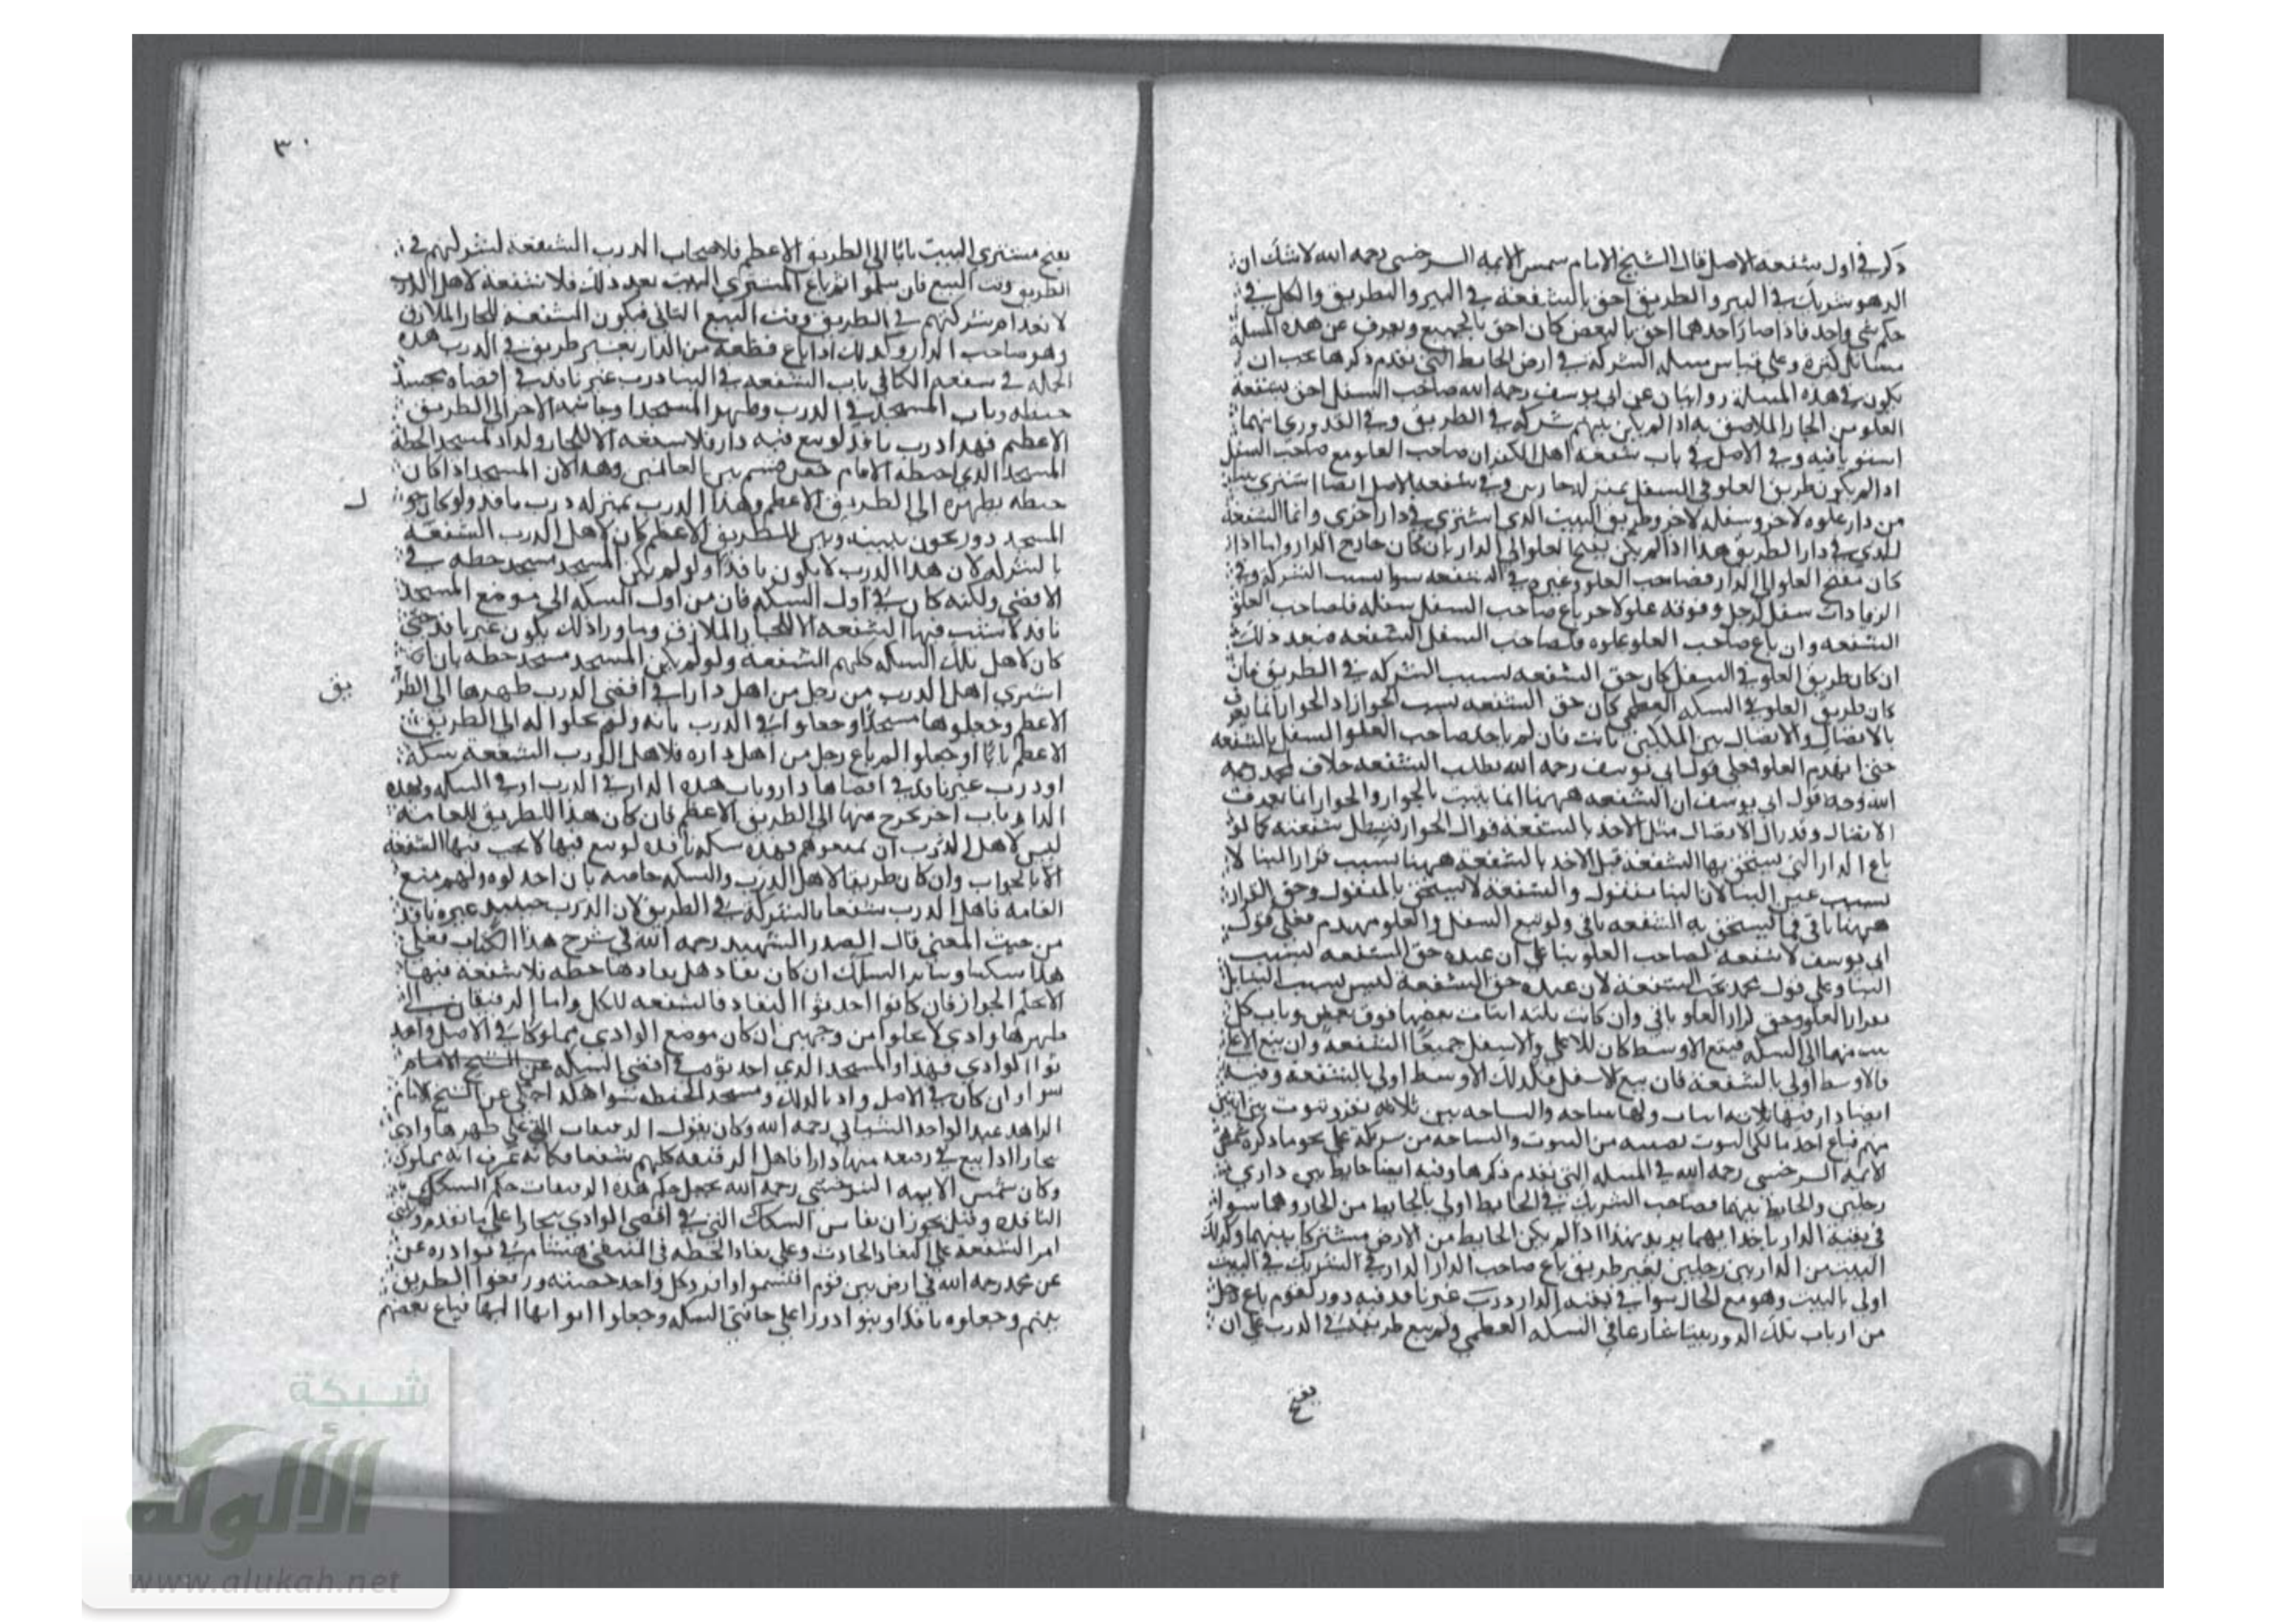 ذكر في اول شفعة الاصل قال الشيخ الامام شمس الايمة السرخسي رحمه الله لا شك ان
الدهو شريك في البير والطريق احق بالشفعة في البير والطريق والكل في
حكم شي واحد فاذا صار احدهما احق بالبعض كان احق بالجميع ويعرف عن هذه المسلة
مسايل كثيرة وعلى قياس مسله الشركة في ارض الحايط التي تقدم ذكرها يجب ان
يكون في هذه المسلة روايتان عن ابي يوسف رحمه الله صاحب السفل احق بشفعة
العلو من الجار الملاصق به اذا لم يكن بينهم شركة في الطريق وفي القدوري انهما
استويا فيه وفي الاصل في باب شفعة اهل الكفر ان صاحب العلو مع صاحب السفل
اذا لم يكن طريق العلو في السفل بمنزله جارين وفي شفعة الاصل ايضا اشترى بيتا
من دار علوه لاخر وسفله لاخر وطريق البيت الذي اشترى في دار اخرى وانما الشفعة
للذي في دار الطريق هذا اذا لم يكن مفتح العلو الى الدار بان كان خارج الدار واما اذا
كان مفتح العلو الى الدار فصاحب العلو وغيره في الشفعه سوا لسبب الشركة وفي
الزيادات سفل لرجل وفوقه علو لاخر باع صاحب السفل سفله فلصاحب العلو
الشفعه وان باع صاحب العلو علوه فلصاحب السفل الشفعه فبعد ذلك
ان كان طريق العلو في السفل كان حق الشفعه لسبب الشركه في الطريق فان
كان طريق العلو في السكه العظمى كان حق الشفعه لسبب الجوار اذ الجوار انما يعرف
بالاتصال والاتصال بين الملكين ثابت فان لم ياخذ صاحب العلو السفل بالشفعه
حتى انهدم العلو فعلى قول ابي يوسف رحمه الله بطلت الشفعه خلاف لمحمد رحمه
الله وجه قول ابي يوسف ان الشفعه ههنا انما يثبت بالجوار والجوار انما يعرف
الاتصال وقد زال الاتصال مثل الاخذ بالشفعة فزال الجوار فتبطل شفعته كما لو
باع الدار التي يستحق بها الشفعة قبل الاخذ بالشفعة ههنا بسبب قرار البنا لا
بسبب عين البنا لان البنا منقول والشفعة لا يستحق بالمنقول وحق القرار
ههنا باقي فما يستحق به الشفعه باقي ولو بيع السفل والعلو منهدم فعلى قول
ابي يوسف لا شفعة لصاحب العلو بنا على ان عنده حق الشفعه لسبب
البنا وعلى قول محمد يجب الشفعة لان عنده حق الشفعة ليس بسبب البنا بل
بقرار العلو وحق قرار العلو باقي وان كانت ثلثة ابيات بعضها فوق بعض وباب كل
بيت منها الى السكه فبيع الاوسط كان للاعلى والاسفل جميعا الشفعه وان بيع الاعلى
فالاوسط اولى بالشفعة فان بيع الاسفل فكذلك الاوسط اولى بالشفعة وفيه
ايضا دار فيها ثلاثه ابيات ولها ساحه والساحه بين ثلاثه نفر وبيوت بين اثنين
منهم فباع احد مالكي البيوت نصيبه من البيوت والساحه من شريكه على نحو ما ذكره شمس
الايمة السرخسي رحمه الله في المسله التي تقدم ذكرها وفيه ايضا حايط بين داري
رجلين والحايط بينهما فصاحب الشريك في الحايط اولى بالحايط من الجار وهما سوا
في بقية الدار ياخذا بهما يريد بهذا اذا لم يكن الحايط من الارض مشتركا بينهما وكذلك
البيت من الدار بين رجلين بغير طريق باع صاحب الدار الدار في الشريك في البيت
اولى بالبيت وهو مع الجار سوا في بقية الدار درب غير نافذ فيه دور لقوم باع رجل
من ارباب تلك الدور بيتا شارعا في السكه العظمى ولم يبع طريقه في الدرب على ان
يفتح
٣٠
يفتح مشتري البيت بابا الى الطريق الاعظم فلاصحاب الدرب الشفعة لشركتهم في
الطريق وقت البيع فان سلموا ثم باع المشتري البيت بعد ذلك فلا شفعة لاهل الدرب
لانعدام شركتهم في الطريق وقت البيع الثاني فيكون الشفعة للجار الملازق
وهو صاحب الدار وكذلك اذا باع قطعة من الدار بغير طريق في الدرب هذه
الجملة في شفعة الكافي باب الشفعه في البنا درب غير نافذ في اقصاه مسجد
خطه وباب المسجد في الدرب وظهر المسجد او جانبه الاخر الى الطريق
الاعظم فهذا درب نافذ لو بيع فيه دار فلا شفعه الا للجار ولداد لمسجد الخطة
المسجد الذي اختطه الامام حين قسم بين الغانمين وهذا لان المسجد اذا كان
خطه بظهره الى الطريق الاعظم وهذا الدرب بمنزله درب نافذ ولو كان حول
المسجد دور تحول بينه وبين الطريق الاعظم كان لاهل الدرب الشفعة
بالشركه لان هذا الدرب لا يكون نافذا ولو لم يكن المسجد مسجد خطه في
الاقصى ولكنه كان في اول السكه فان من اول السكه الى موضع المسجد
نافذ لا يثبت فيها الشفعه الا للجار الملازق وما ورا ذلك يكون غير نافذ حتى
كان لاهل تلك السكه كلهم الشفعة ولو لم يكن المسجد مسجد خطه بان
اشترى اهل الدرب من رجل من اهل دارا في اقصى الدرب ظهرها الى الطر
يق
الاعظم وجعلوها مسجدا وجعلوا في الدرب بابه ولم يجعلوا له الى الطريق
الاعظم بابا او جعلوا ثم باع رجل من اهل داره فلاهل الدرب الشفعة سكة
او درب غير نافذ في اقصاها دار وباب هذه الدار في الدرب او في السكه ولهذه
الدار باب اخر يخرج منها الى الطريق الاعظم فان كان هذا الطريق للعامة
ليس لاهل الدرب ان يمنعوهم فهذه سكة نافذه لو بيع فيها لا يجب فيها الشفعة
الا بالجوار وان كان طريقا لاهل الدرب والسكه خاصه بان احدثوه ولهم منع
العامه فاهل الدرب شفعا بالشركة في الطريق لان الدرب حينيذ غير نافذ
من حيث المعنى قال الصدر الشهيد رحمه الله في شرح هذا الكتاب فعلى
هذا سكتنا وساير السكك ان كان نفادها خطه فلا شفعة فيها
فان كانوا احدثوا النفاد فالشفعه للكل واما الدقيقان التي
ظهرها وادي لا يخلوا من وجهين ان كان موضع الوادي مملوكا في الاصل واحد
ثوا الوادي فهذا والمسجد الذي احدثوه في اقصى السكه
سوا وان كان في الاصل واديا لذلك ومسجد الخطه سوا هكذا حكي عن الشيخ الامام
الزاهد عبد الواحد الشيباني رحمه الله وكان يقول التي على ظهرها وادي
بخارا اذا بيع في منها دارا فاهل كلهم شفعا فكانه عرف انه مملوك
وكان شمس الايمه السرخسي رحمه الله يجعل حكم هذه حكم السكك
النافذه وقيل يجوز ان يقاس السكك التي في اقصى الوادي بخارا على ما تقدم
امر الشفعه على النفاد الحادث وعلى نفاد الخطه في المنتقى هشام في نوادره عن
عن محمد رحمه الله في ارض بين قوم اقتسموا وافرد كل واحد حصته ورفعوا الطريق
بينهم وجعلوه نافذا وبنوا دورا على حافتي السكه وجعلوا ابوابها اليها فباع بعضهم
شبكة
الألوكة
www.alukah.net